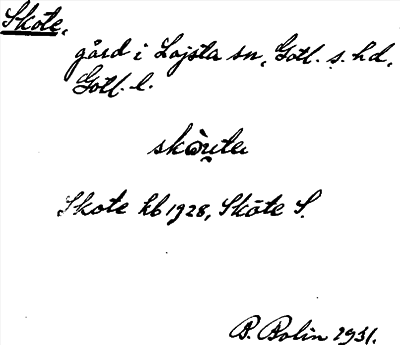 Skote,
gård i Lojsta sn, Gotl. s. hd,
Gotl. l.
skòutǝ
Skote kb 1928, Skōte S.
B. Bolin 1931.